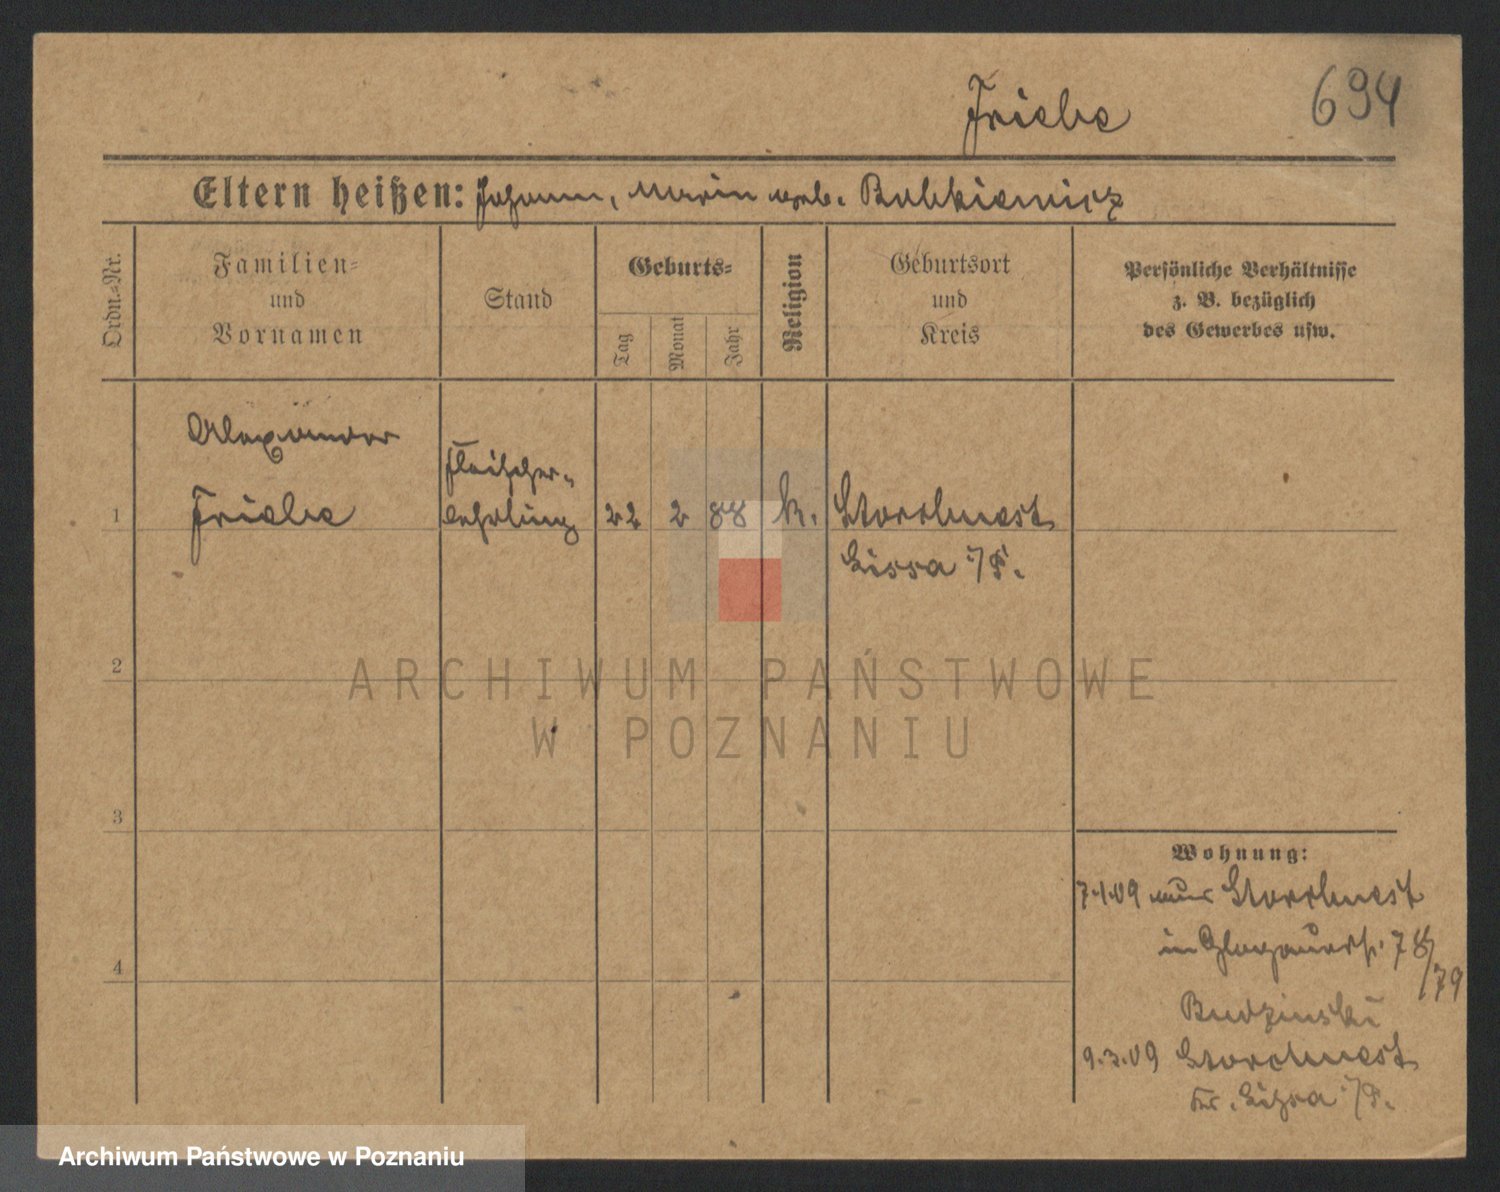 694
Friebe
Eltern heißen: Johann, Maria geb. Bubkiewicz
Ordn.-Nr.
Familien-
und
Vornamen
Stand
Geburts-
Tag
Monat
Jahr
Religion
Geburtsort
und
Kreis
Persönliche Verhältnisse
z. B. bezüglich
des Gewerbes usw.
Alexander
Fleischer-
1 Friebe lehrling 22 2 88 k. Storchnest
Lissa i/P.
2
ARCHIWUM PAŃSTWOWE
W POZNANIU
3
Wohnung:
7.1.09 aus Storchnest
4
in Glogauerstr. 78/79
Budzinski
9.3.09 Storchnest
Kr. Lissa i/P.
Archiwum Państwowe w Poznaniu